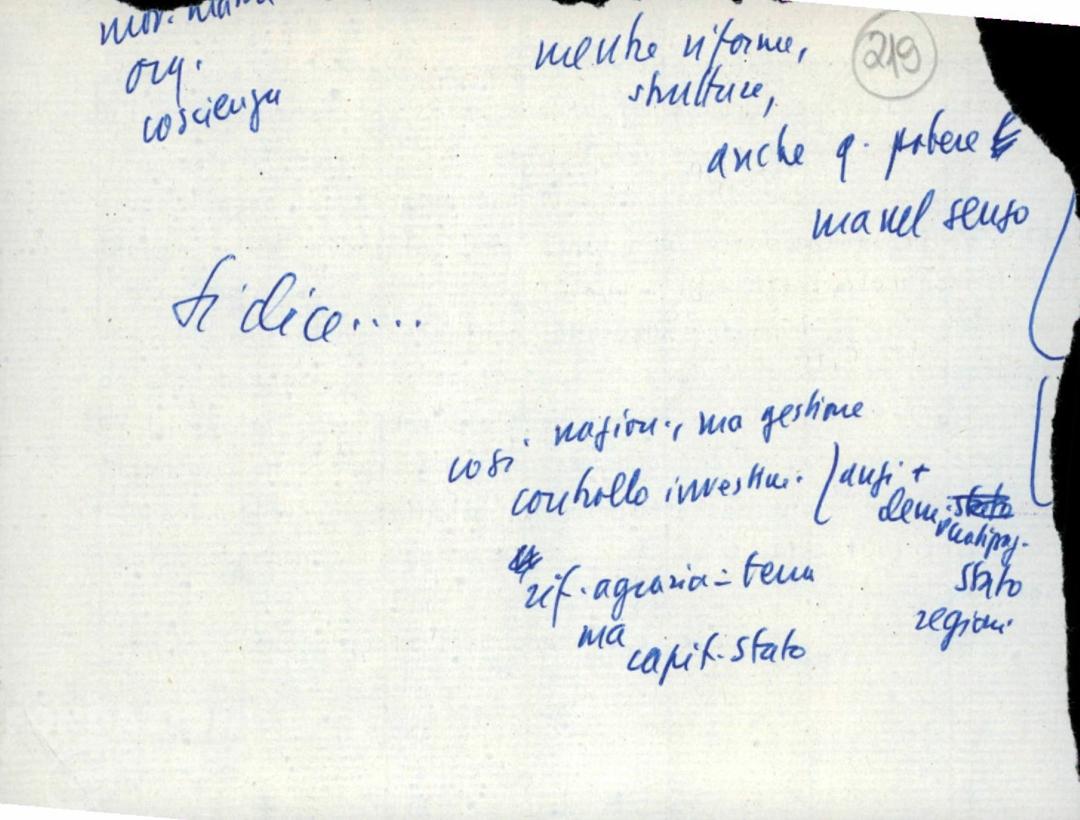 mov.
org.
coscienza
219
mentre riforme,
strutture,
anche q. potere
ma nel senso
Si dice....
così nazion., ma gestione
controllo investim. (anzi +
dem.
stato
regioni
rif. agraria = terra
ma
capit. stato